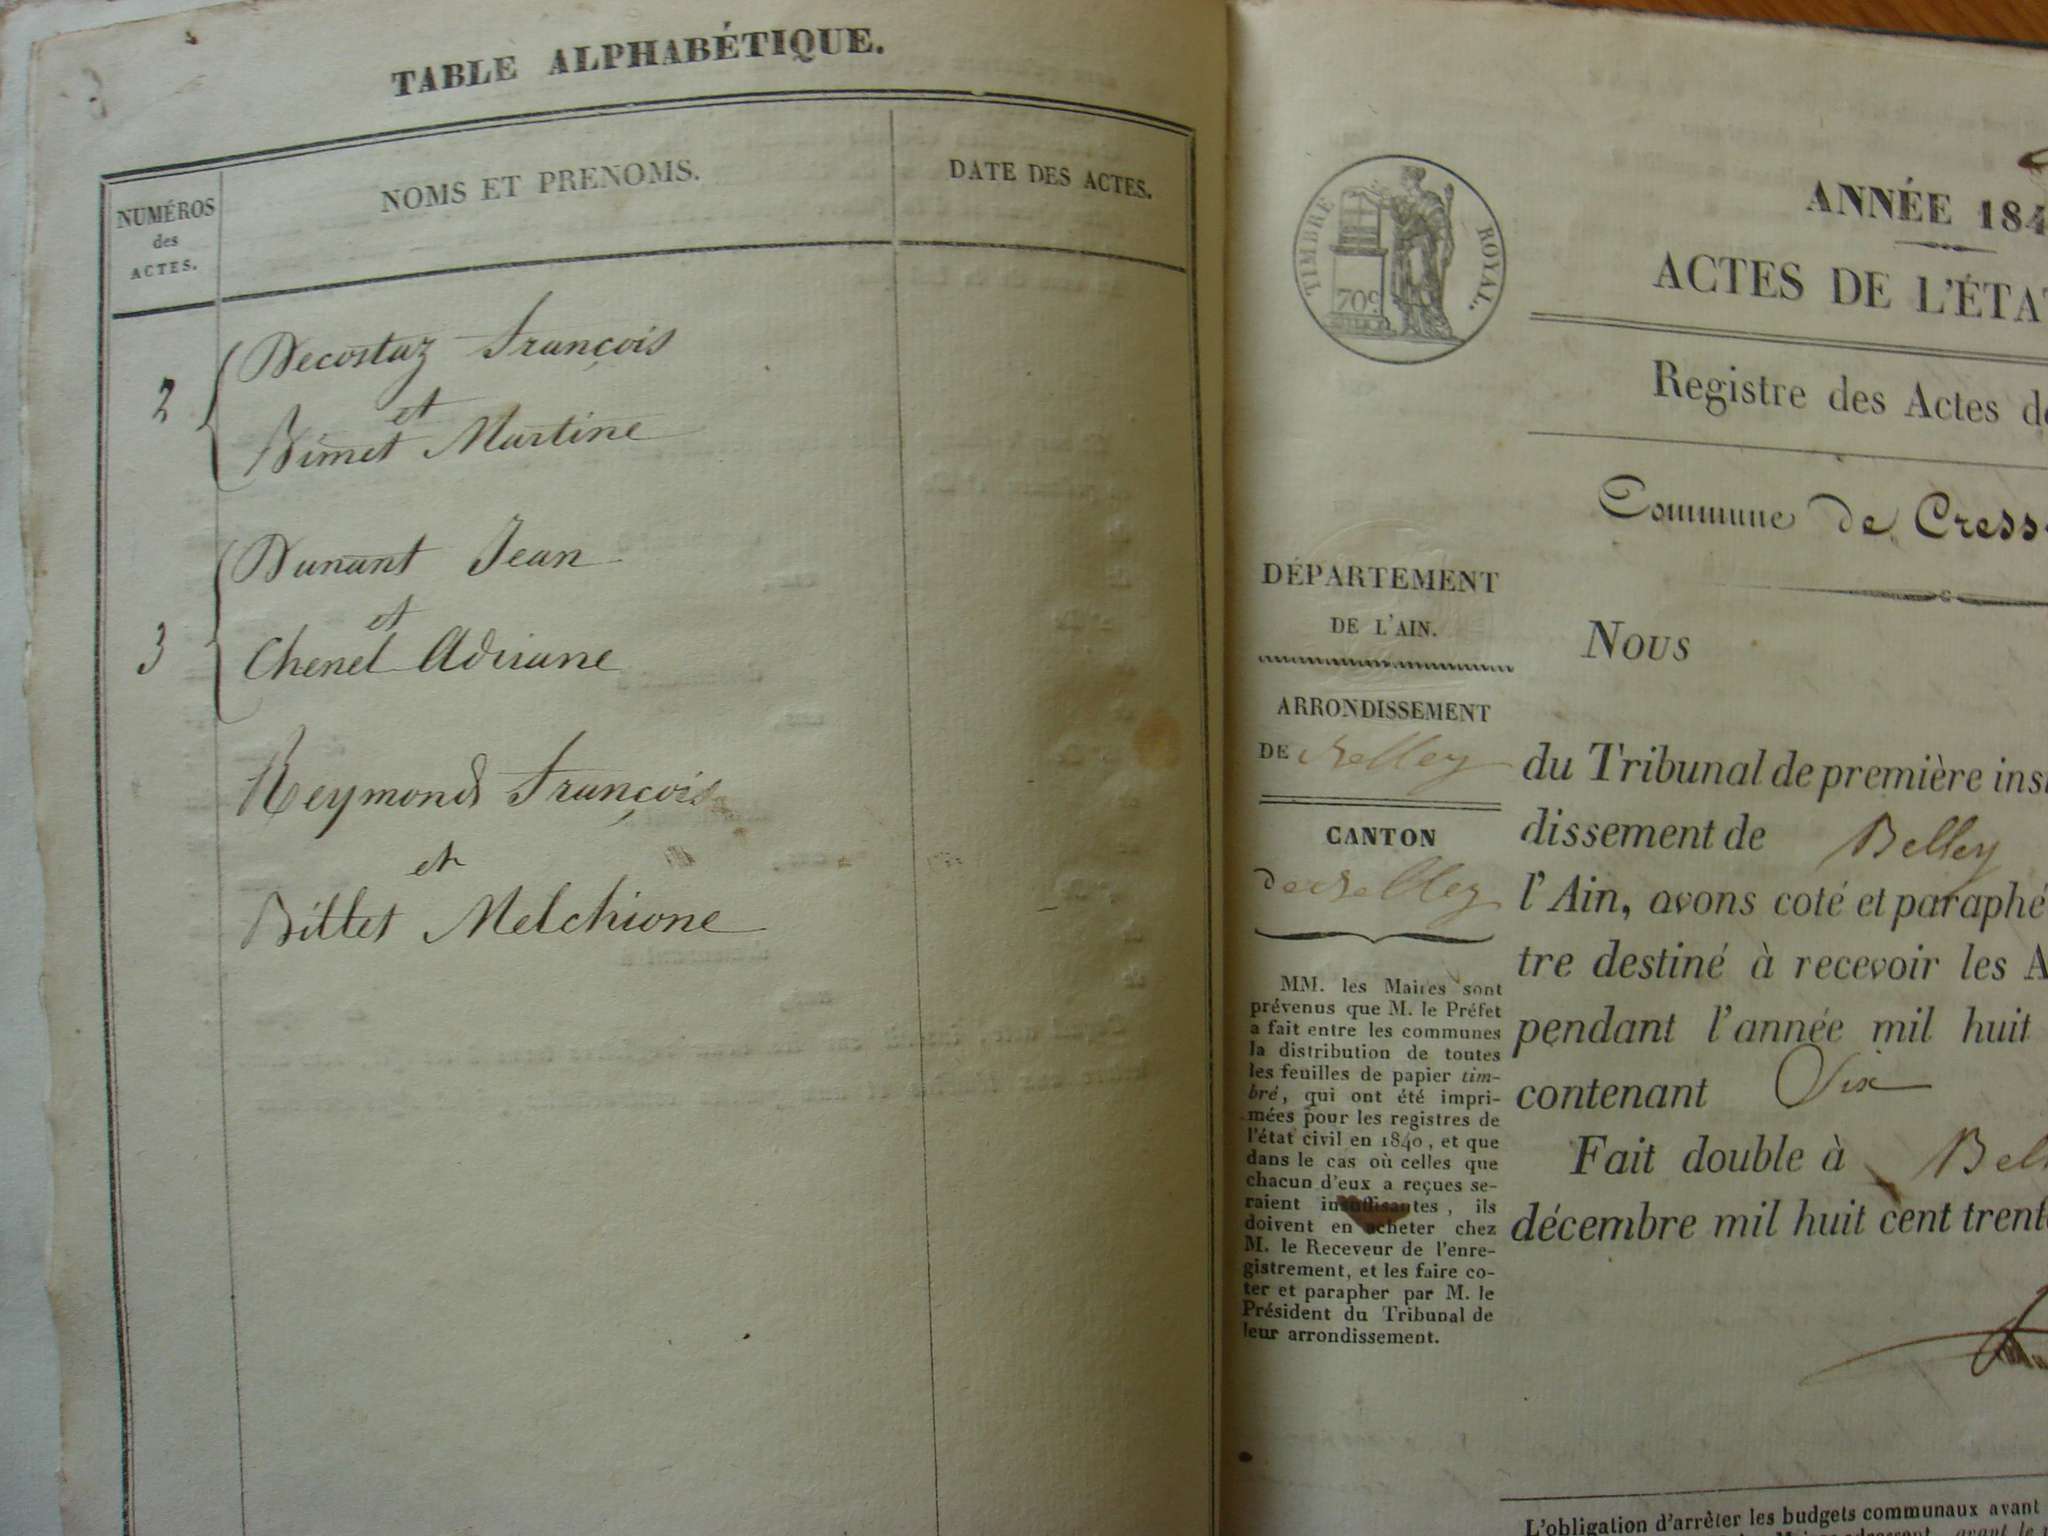 TABLE ALPHABÉTIQUE.
NUMÉROS
des
ACTES.
NOMS ET PRENOMS.
DATE DES ACTES.
Decostaz François
et
2
Bimet Martine
Dunant Jean
et
3
Chenel Adriane
Reymond François
et
Billet Melchione
TIMBRE ROYAL.
70c.
ANNÉE 184
ACTES DE L'ÉTA
Registre des Actes d
Commune de Cress
DÉPARTEMENT
DE L'AIN.
ARRONDISSEMENT
DE Belley
CANTON
de Belley
MM. les Maires sont
prévenus que M. le Préfet
a fait entre les communes
la distribution de toutes
les feuilles de papier tim-
bré, qui ont été impri-
mées pour les registres de
l'état civil en 1840, et que
dans le cas où celles que
chacun d'eux a reçues se-
raient insuffisantes, ils
doivent en acheter chez
M. le Receveur de l'enre-
gistrement, et les faire co-
ter et parapher par M. le
Président du Tribunal de
leur arrondissement.
Nous
du Tribunal de première ins
dissement de Belley
l'Ain, avons coté et paraphé
tre destiné à recevoir les A
pendant l'année mil huit
contenant Six
Fait double à Bel
décembre mil huit cent trent
L'obligation d'arrêter les budgets communaux avant